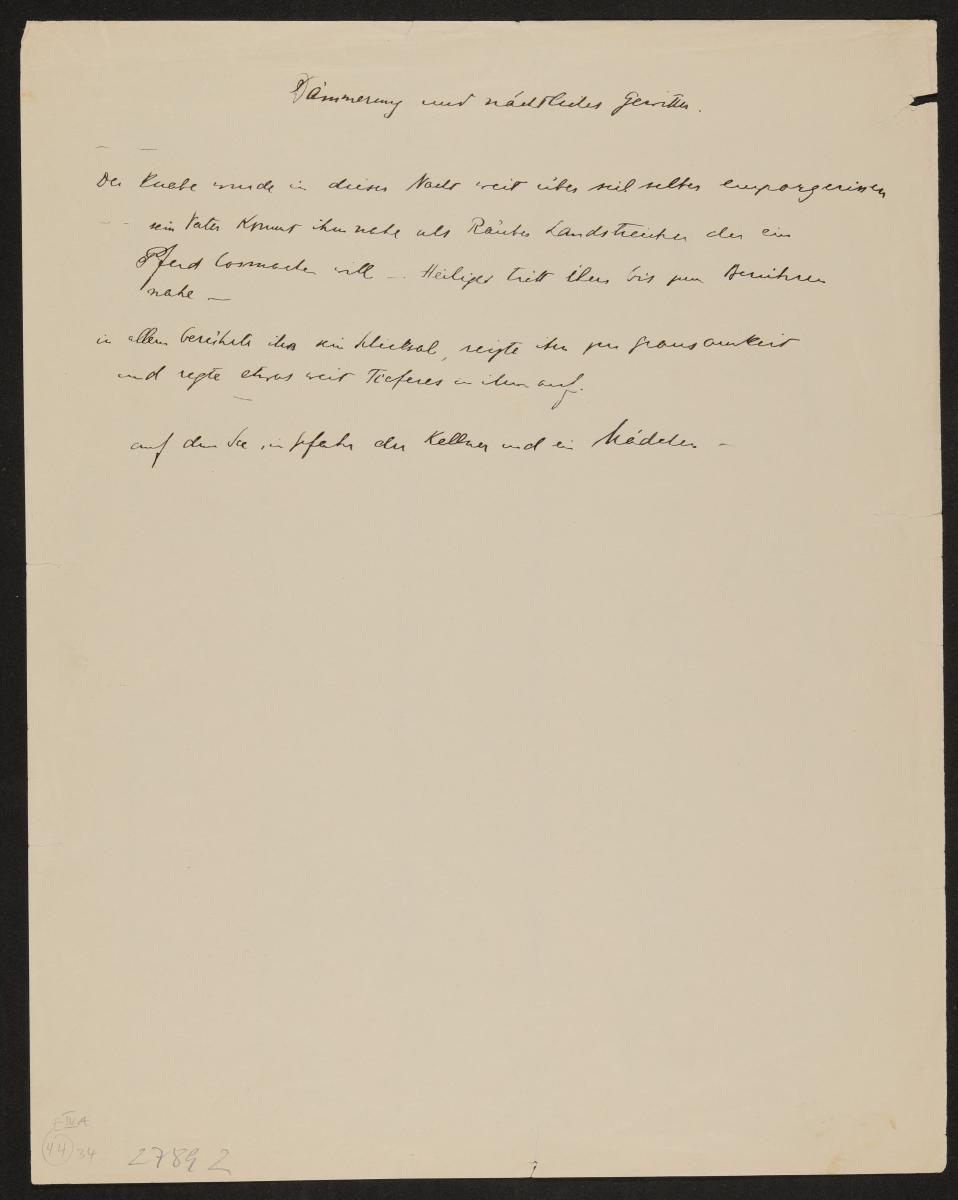 Dämmerung und nächtliches Gewitter.
Der Knabe wurde in dieser Nacht weit über sich selber emporgerissen
sein Vater kommt ihm nahe als Räuber Landstreicher der ein
Pferd losmachen will – Heiliger tritt ihm bis zum Berühren
nahe –
in allem berührte ihn sein Schicksal, reizte ihn zur Grausamkeit
und regte etwas weit Tieferes in ihm auf.
auf dem See in Gefahr der Kellner und ein Mädchen –
E IV A
44 34
27892